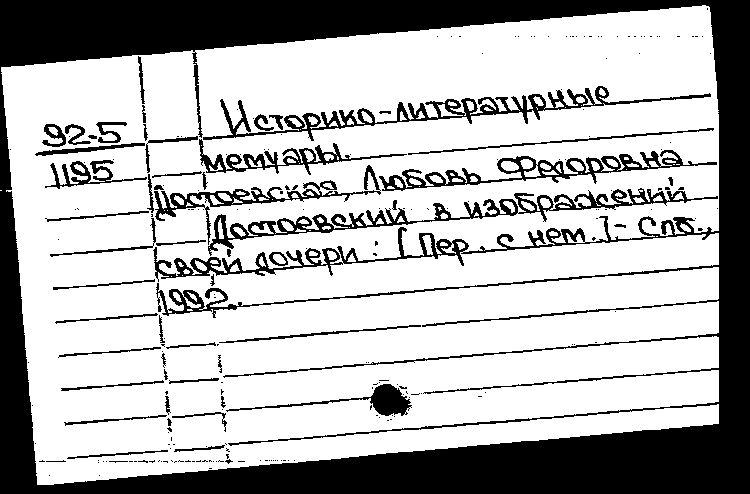 92-5
1195
Историко-литературные
мемуары.
Достоевская, Любовь Федоровна.
Достоевский в изображений
своей дочери : [Пер. с нем.].- Спб.,
1992.